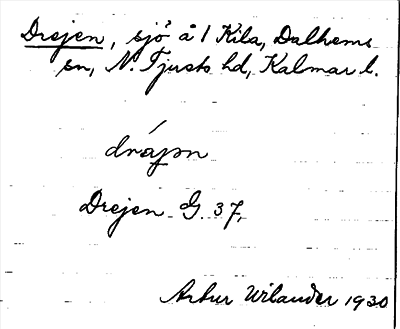 Drejen, sjö å 1 Kila, Dalhems
sn, N. Tjusts hd, Kalmar l.
drájən
Drejen G. 37,
Artur Wilander 1930